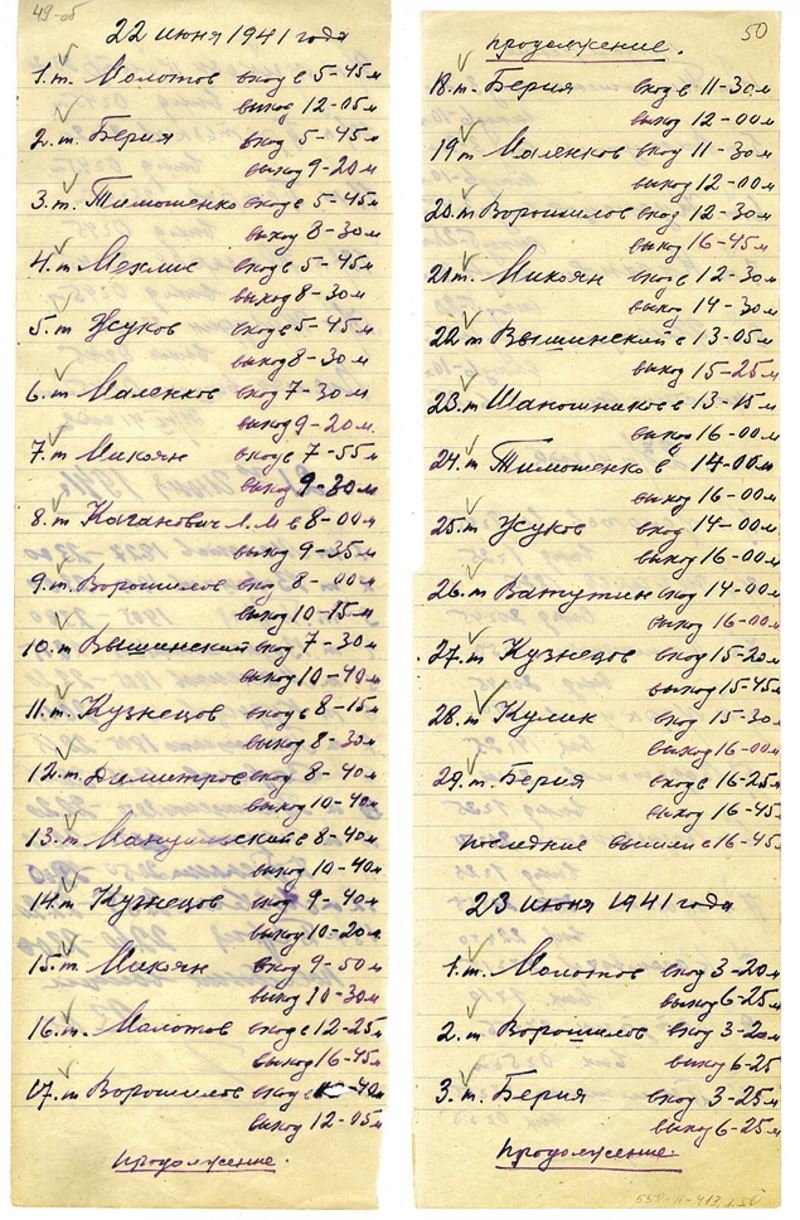 49-об
22 июня 1941 года
1. т. Молотов вход в 5-45м
выход 12-05м
2. т. Берия вход 5-45м
выход 9-20м
3. т. Тимошенко вход в 5-45м
выход 8-30м
4. т Мехлис вход в 5-45м
выход 8-30м
5. т Жуков вход в 5-45м
выход 8-30м
6. т Маленков вход 7-30м
выход 9-20м.
7. т Микоян вход в 7-55м
выход 9-30м
8. т Каганович Л.М в 8-00м
выход 9-35м
9. т Ворошилов вход 8-00м
выход 10-15м
10. т Вышинский вход 7-30м
выход 10-40м
11. т. Кузнецов вход в 8-15м
выход 8-30м
12. т. Димитров вход 8-40м
выход 10-40м
13. т. Мануильский в 8-40м
выход 10-40м
14. т Кузнецов вход 9-40м
выход 10-20м
15. т. Микоян вход 9-50м
выход 10-30м
16. т. Молотов вход в 12-25м
выход 16-45м
17. т Ворошилов вход в -40м
выход 12-05м
продолжение.
50
продолжение.
18. т. Берия вход в 11-30м
выход 12-00м
19 т Маленков вход 11-30м
выход 12-00м
20. т Ворошилов вход 12-30м
выход 16-45м
21 т. Микоян вход в 12-30м
выход 14-30м
22 т Вышинский в 13-05м
выход 15-25м
23. т Шапошников в 13-15м
выход 16-00м
24. т Тимошенко в 14-00м
выход 16-00м
25. т Жуков вход 14-00м
выход 16-00м
26. т Ватутин вход 14-00м
выход 16-00м
27. т Кузнецов вход 15-20м
выход 15-45м
28. т Кулик вход 15-30м
выход 16-00м
29. т. Берия вход в 16-25м
выход 16-45
Последние вышли в 16-45
23 июня 1941 года
1. т. Молотов вход 3-20м
выход 6-25м
2. т Ворошилов вход 3-20м
выход 6-25
3. т. Берия вход 3-25м
выход 6-25м
продолжение